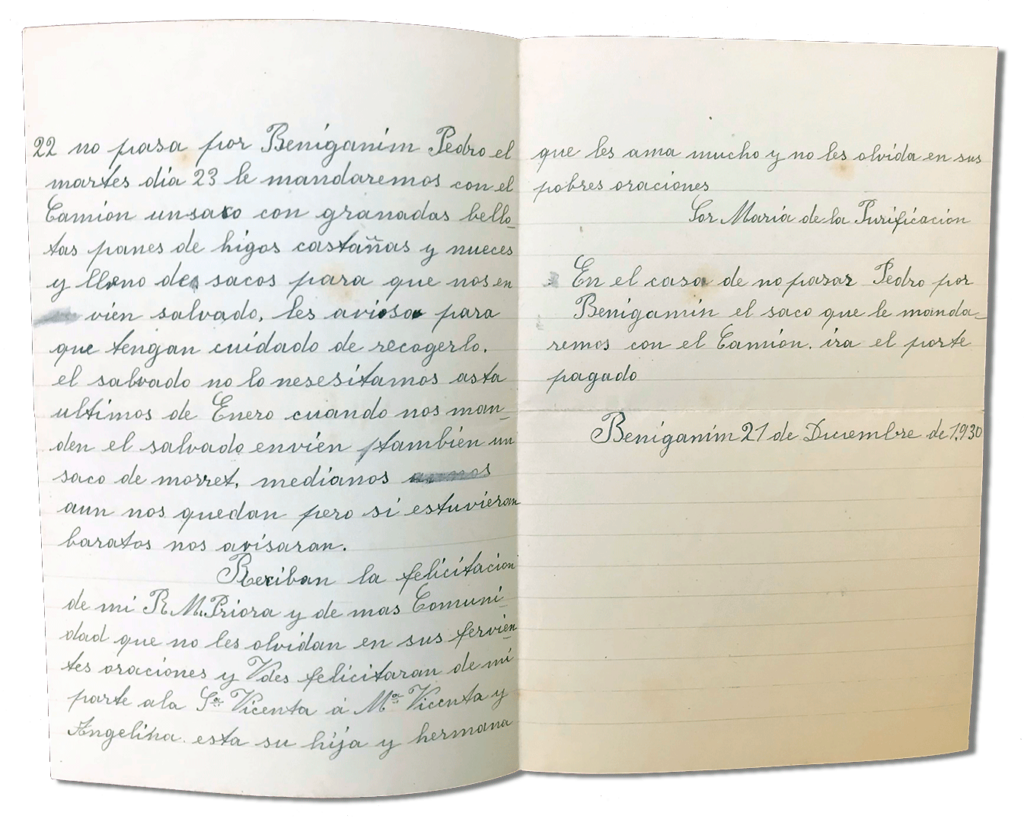 22 no pasa por Beniganim Pedro el
martes dia 23 le mandaremos con el
Camión un saco con granadas bello-
tas panes de higos castañas y nueces
y lleno de sacos para que nos en
vien salvado, les aviso para
que tengan cuidado de recogerlo.
el salvado no lo nesesitamos asta
ultimos de Enero cuando nos man-
den el salvado envién también un
saco de morret, medianos
aun nos quedan pero si estuvieran
baratos nos avisaran.
Reciban la felicitacion
de mi R. M. Priora y de mas Comuni-
dad que no les olvidan en sus fervien-
tes oraciones y Vdes felicitaran de mi
parte a la Sra Vicenta á Ma Vicenta y
Angelina. esta su hija y hermana
que les ama mucho y no les olvida en sus
pobres oraciones
Sor María de la Purificación
En el casa de no pasar Pedro por
Benigamin el saco que le manda-
remos con el Camión. ira el porte
pagado
Beniganim 21 de Diciembre de 1.930